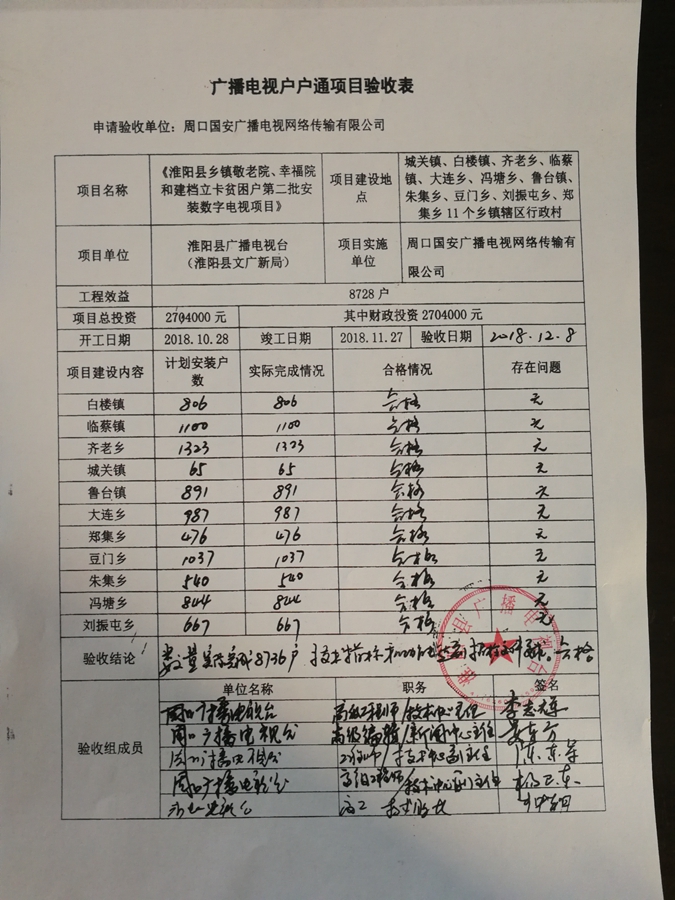 广播电视户户通项目验收表
申请验收单位：周口国安广播电视网络传输有限公司
项目名称
《淮阳县乡镇敬老院、幸福院
和建档立卡贫困户第二批安
装数字电视项目》
项目建设地
点
城关镇、白楼镇、齐老乡、临蔡
镇、大连乡、冯塘乡、鲁台镇、
朱集乡、豆门乡、刘振屯乡、郑
集乡 11 个乡镇辖区行政村
项目单位
淮阳县广播电视台
（淮阳县文广新局）
项目实施
单位
周口国安广播电视网络传输有
限公司
工程效益 8728 户
项目总投资 2704000 元 其中财政投资 2704000 元
开工日期 2018.10.28 竣工日期 2018.11.27 验收日期 2018.12.8
项目建设内容 计划安装户
数
实际完成情况 合格情况 存在问题
白楼镇 806 806 合格 无
临蔡镇 1100 1100 合格 无
齐老乡 1323 1323 合格 无
城关镇 65 65 合格 无
鲁台镇 891 891 合格 无
大连乡 987 987 合格 无
郑集乡 476 476 合格 无
豆门乡 1037 1037 合格 无
朱集乡 540 540 合格 无
冯塘乡 844 844 合格 无
刘振屯乡 667 667 合格 无
验收结论 数量实际完成8736户 合格
验收组成员
单位名称 职务 签名
周口广播电视台 高级工程师/技术中心主任
周口广播电视台 高级编辑
工程师/技术中心副主任
周口广播电视台 高级工程师/技术中心副主任
高工